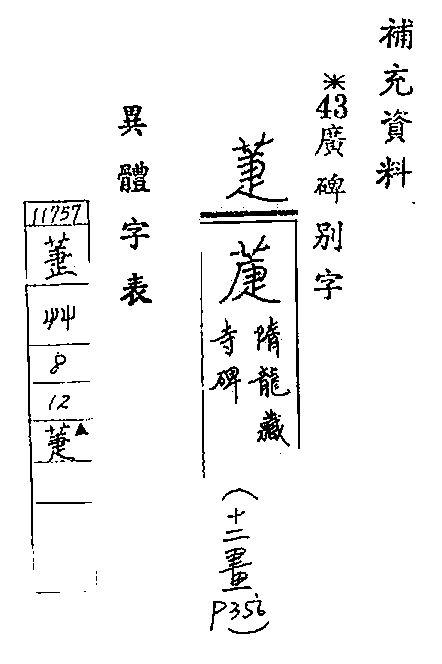 補充資料
※43廣碑別字
萐
隋龍藏
寺碑
(十二畫
P356)
異體字表
11757
艸
8
12
萐